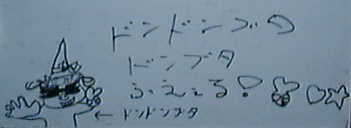 ドンドンブタ
ドンブタ
ふえぇる!
←ドンドンブタ